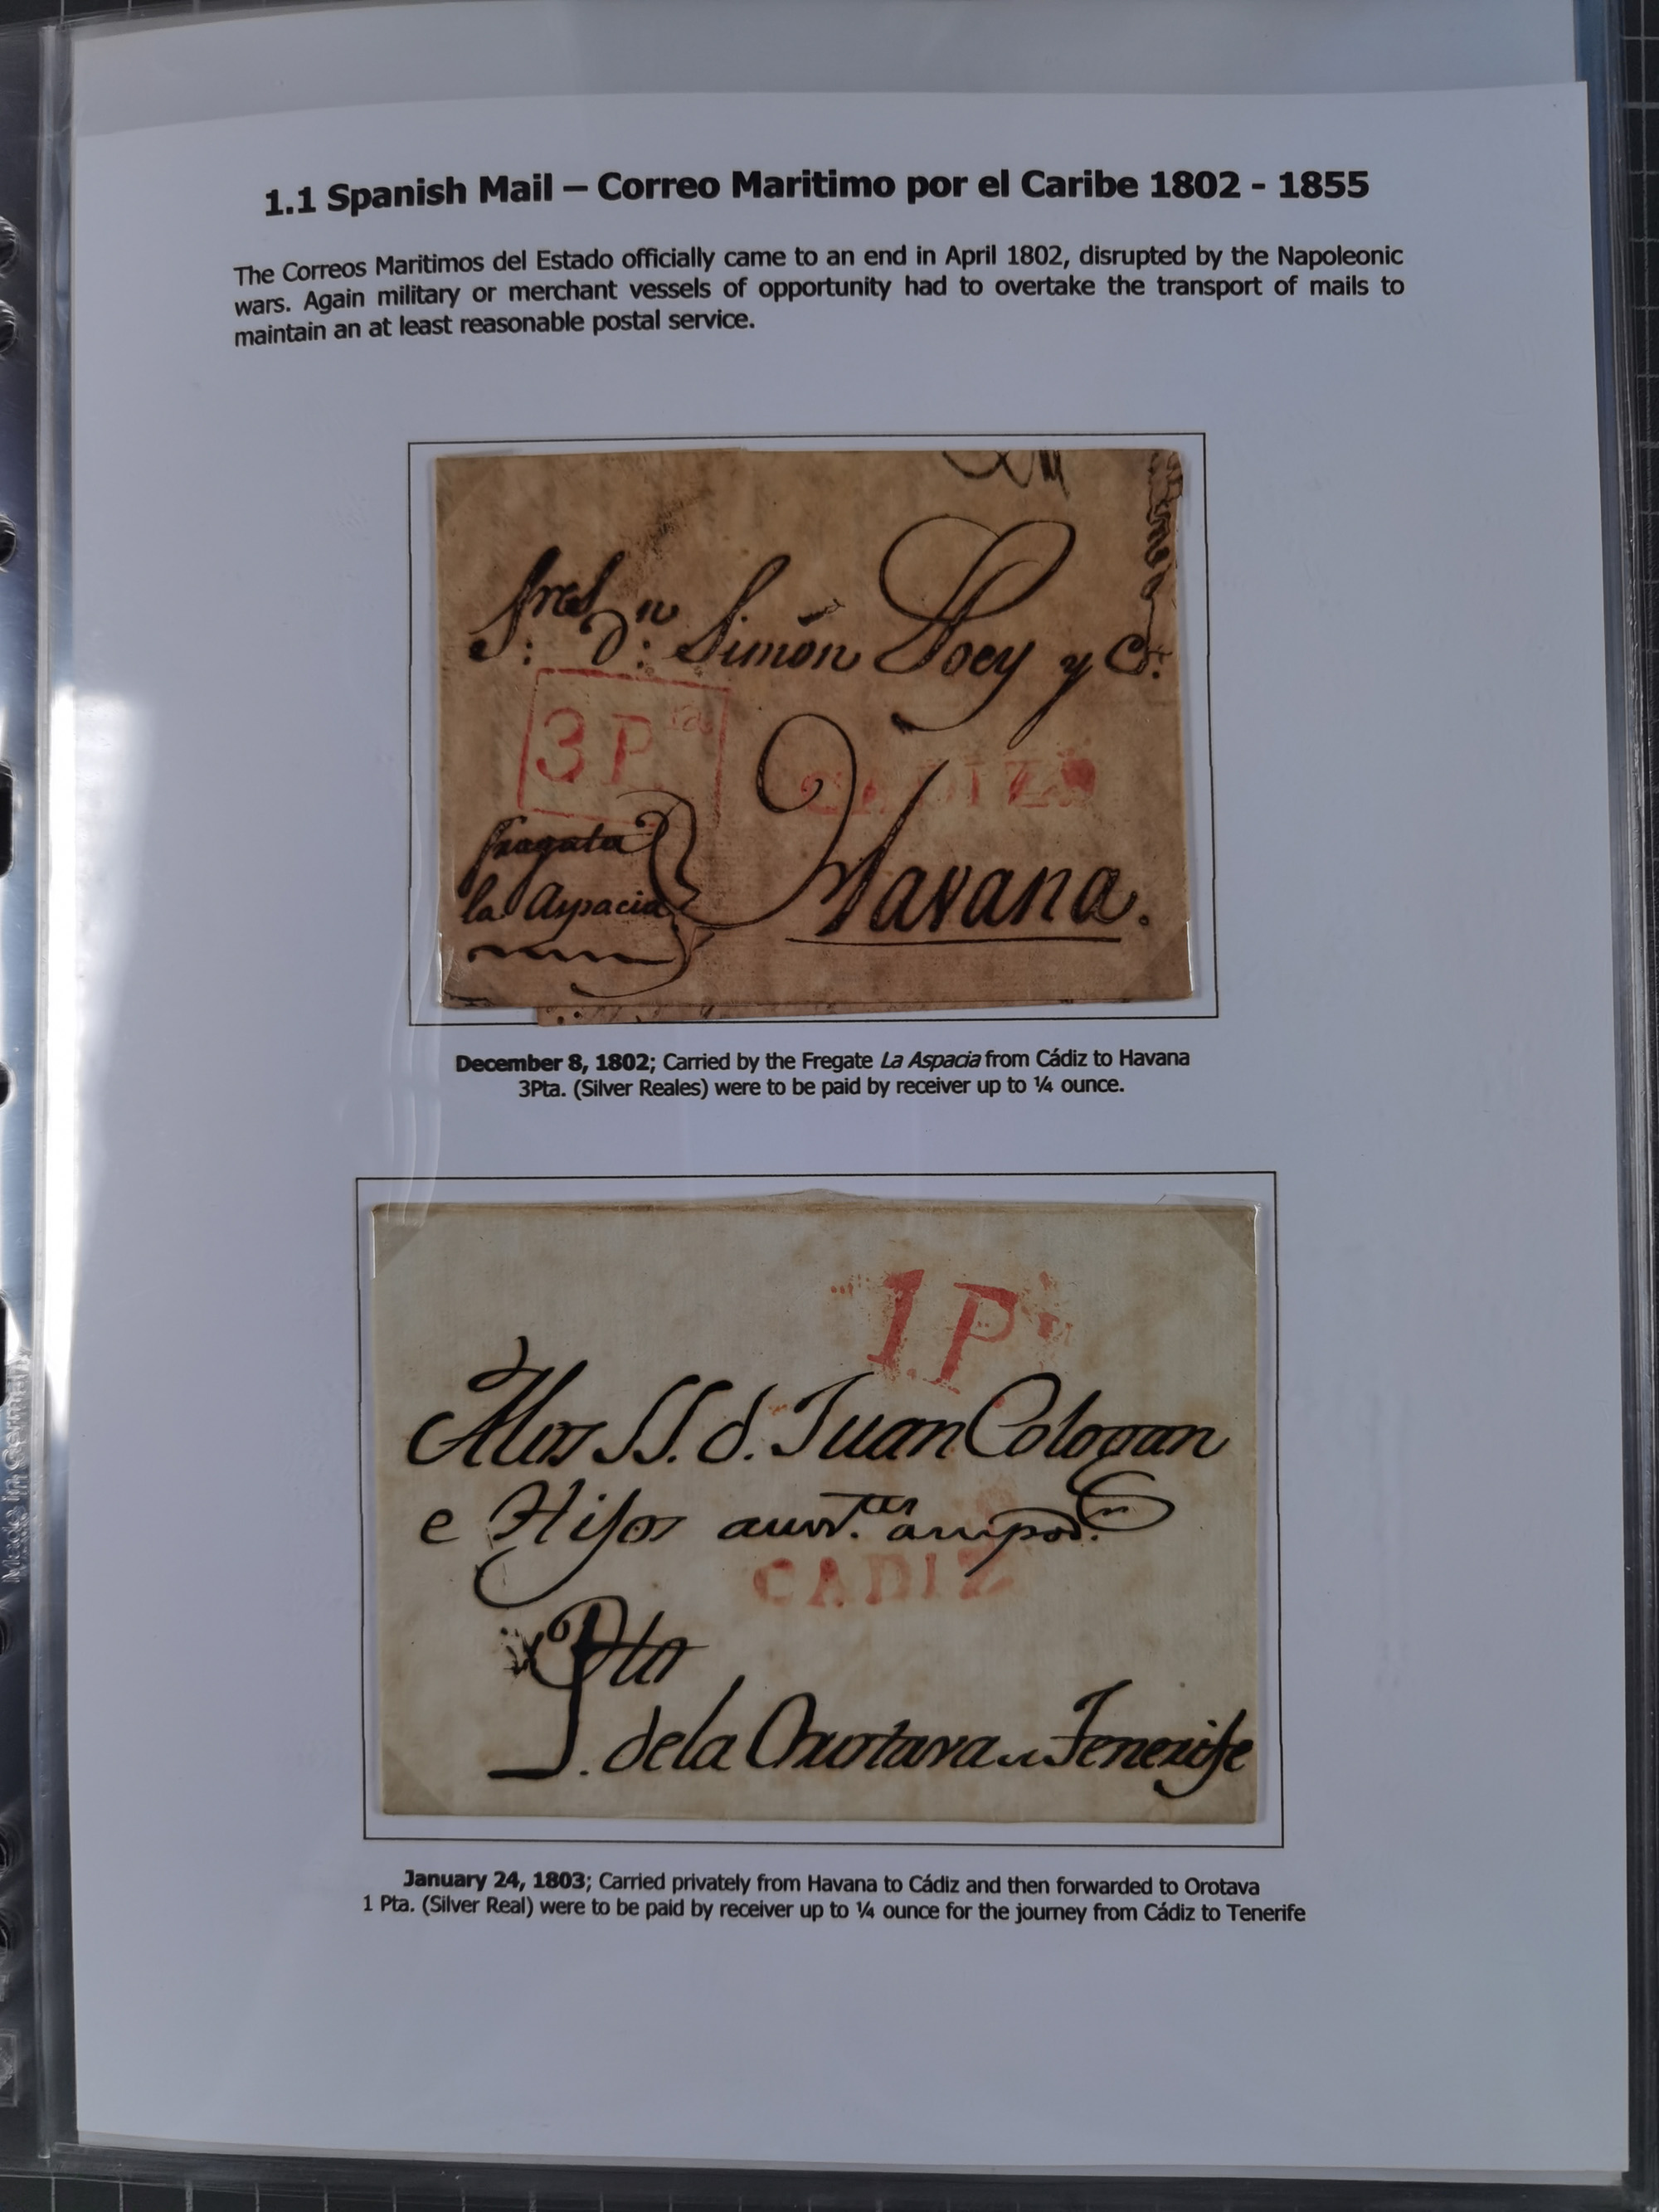 1.1 Spanish Mail – Correo Maritimo por el Caribe 1802 - 1855
The Correos Maritimos del Estado officially came to an end in April 1802, disrupted by the Napoleonic
wars. Again military or merchant vessels of opportunity had to overtake the transport of mails to
maintain an at least reasonable postal service.
Sres
S: Dn: Simón Poey y Ca.
3 Pta
CADIZ
fragata
la Aspacia
Havana.
December 8, 1802; Carried by the Fregate La Aspacia from Cádiz to Havana
3Pta. (Silver Reales) were to be paid by receiver up to ¼ ounce.
1 P
Alos SS. d. Juan Cologan
e Hijos
CADIZ
Pto
de la Orotava Tenerife
January 24, 1803; Carried privately from Havana to Cádiz and then forwarded to Orotava
1 Pta. (Silver Real) were to be paid by receiver up to ¼ ounce for the journey from Cádiz to Tenerife
Made in Germany